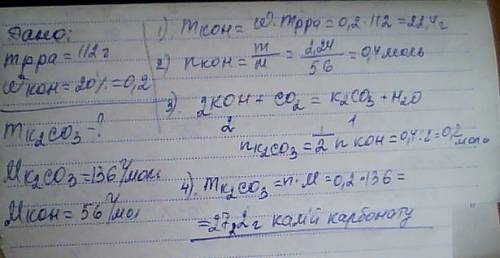 Дано:
mрра = 112 г
ωкон = 20% = 0,2
mK₂CO₃ - ?
MK₂CO₃ = 136 г/моль
Mкон = 56 г/мол
1) mкон = ω · mрра = 0,2 · 112 = 22,4 г
2) nкон = m/M = 2,24/56 = 0,4 моль
3) 2KOH + CO₂ = K₂CO₃ + H₂O
2 1
nK₂CO₃ = 1/2 n кон = 0,4 : 2 = 0,2 моль
4) mK₂CO₃ = n · M = 0,2 · 136 =
= 27,2 г калій карбонату